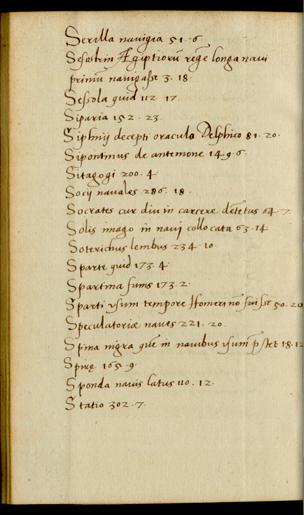 Serilla navigia 51. 6.
Sesostrin Ægiptiorũ rege longa navi
primũ navigasse 3. 18.
Sessola quid 112. 17.
Siparia 152. 23.
Siphnij decepti oraculo Delphico 81. 20.
Sipontinus de antemone 149. 6.
Sitagogi 200. 4.
Socij navales 286. 18.
Socrates cur diu in carcere detẽtus 64. 7.
Solis imago in navij collocata 63. 14
Soterichus lembus 234. 10.
Sparte quid 173. 4.
Spartina funis 173. 2.
Sparti usum tempore Homeri nõ fuisse 50. 20
Speculatoriæ naves 221. 20.
Spina nigra quẽ in navibus usum p̃stet 18. 12
Spirę 165. 9.
Sponda navis latus 110. 12.
Statio 302. 7.